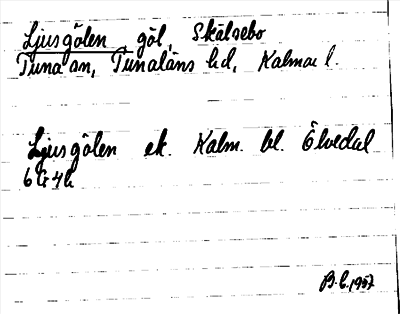 Ljusgölen göl, Skälsebo
Tuna sn, Tunaläns hd, Kalmar l.
Ljusgölen ek. Kalm. bl. Ölvedal
6G4h
B.E. 1957